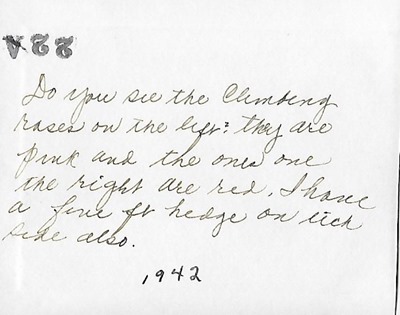 22A
Do you see the Climbing
roses on the left? they are
pink and the ones one
the right are red. I have
a fine ft hedge on each
side also.
1942